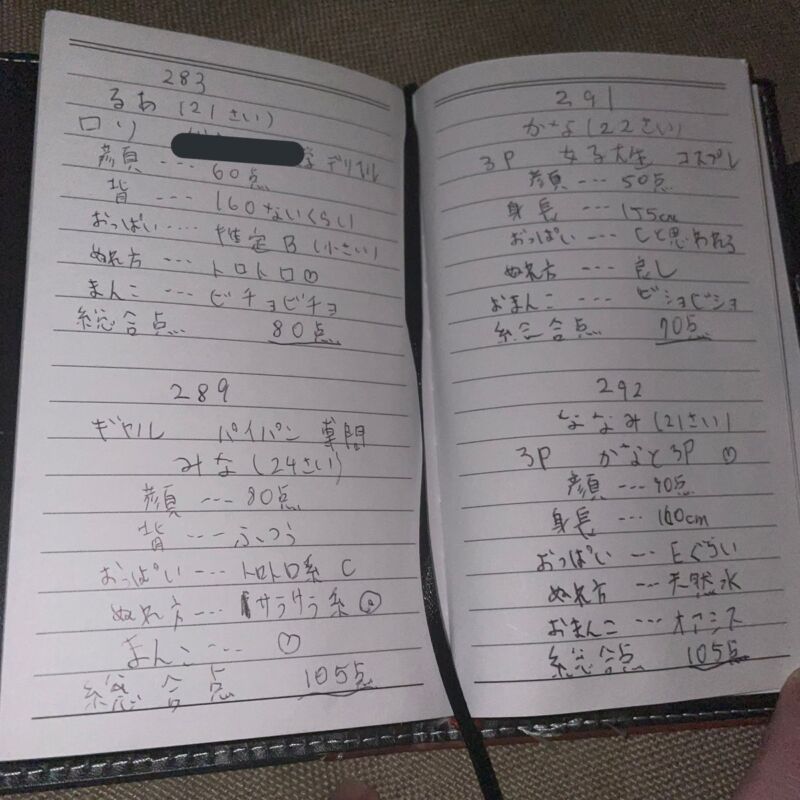 283
るあ(21さい)
ロリ デリヘル
顔…60点
背…160ないくらい
おっぱい…推定B(小さい)
ぬれ方…トロトロ
まんこ…ビチョビチョ
総合点 80点
289
ギャル パイパン専門
みな(24さい)
顔…80点
背…ふつう
おっぱい…トロトロ系 C
ぬれ方…サラサラ系
まんこ…
総合点 105点
291
かな(22さい)
3P 女子大生 コスプレ
顔…50点
身長…155cm
おっぱい…Cと思われる
ぬれ方…良し
おまんこ…ビショビショ
総合点 70点
292
ななみ(21さい)
3P かなと3P
顔…90点
身長…160cm
おっぱい…Eぐらい
ぬれ方…天然水
おまんこ…オアシス
総合点 105点